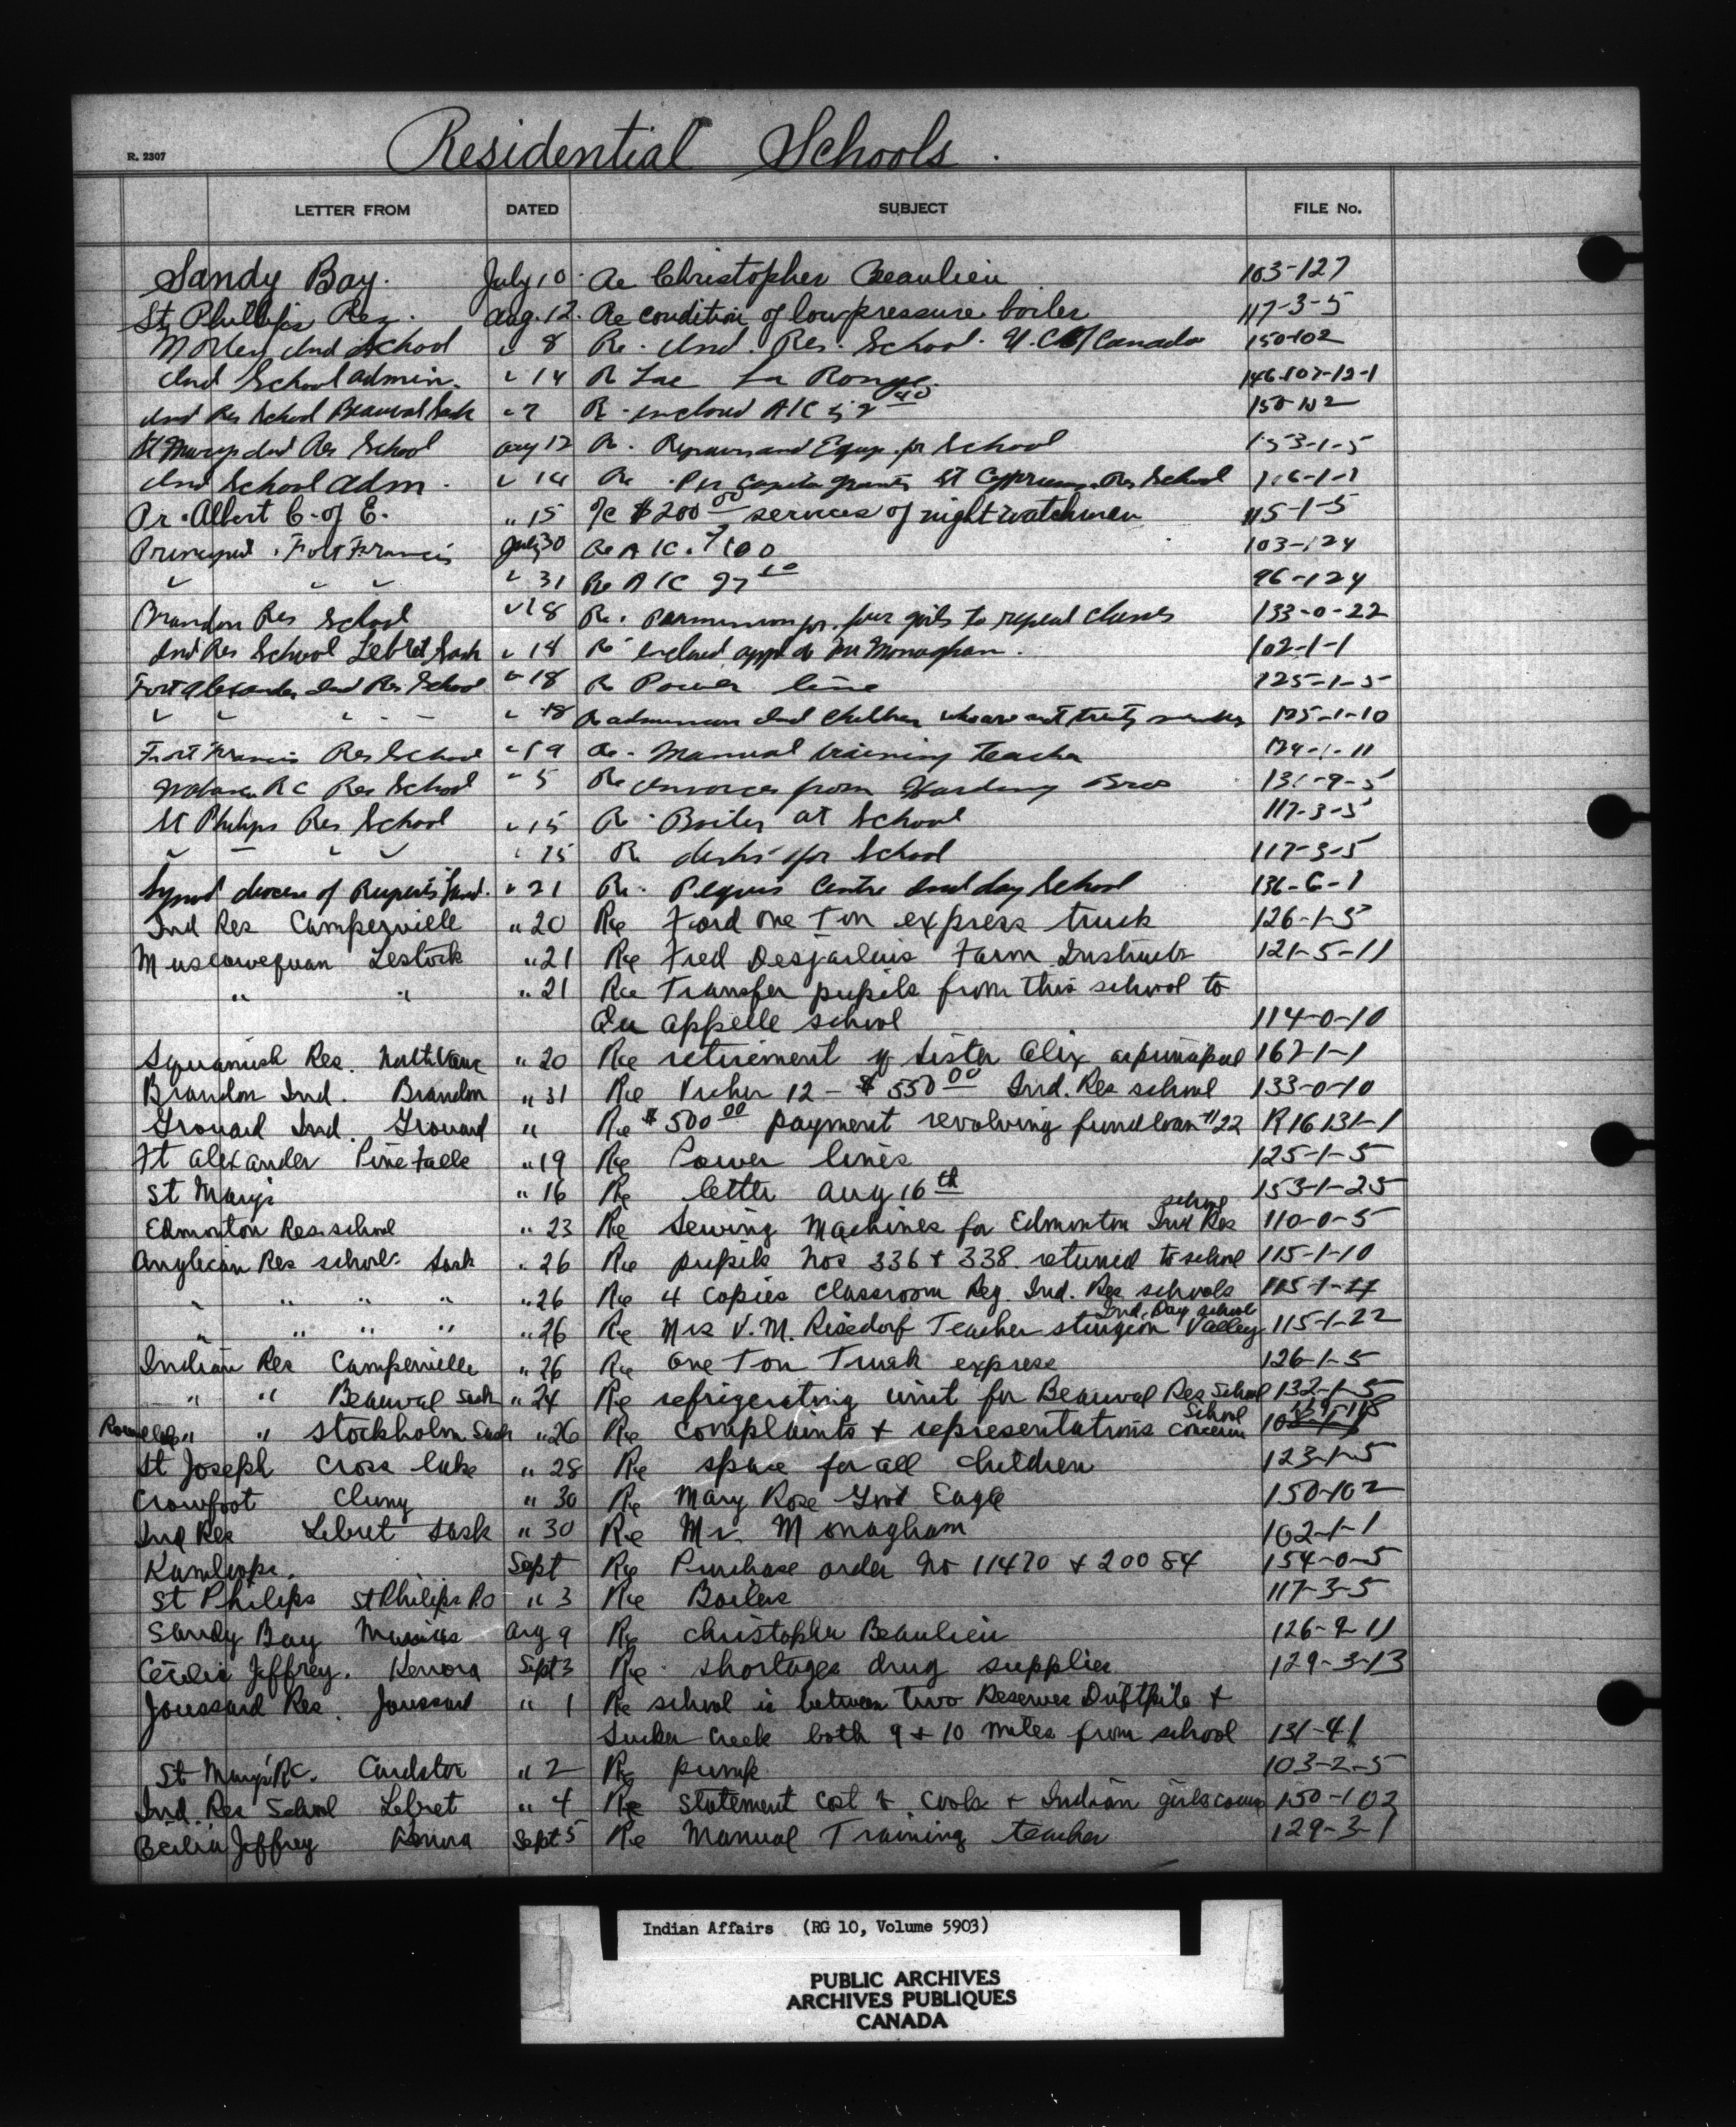 Residential Schools.
R. 2307
LETTER FROM DATED SUBJECT FILE No.
Sandy Bay. July 10. Re Christopher Beaulieu 103-127
St Phillips Res. Aug. 12. Re condition of low pressure boiler 117-3-5
Morley Ind School " 8 Re. Ind. Res. School. U.C. of Canada 150-102
Ind School admin. " 14 R Lac La Ronge. 146-107-12-1
Ind Res School Beauval Sask " 7 150-102
St Marys Ind Res School Aug 12 Re. Repairs and Equip. for School 153-1-5
Ind School Adm. " 14 Re. Per Capita grants St Cyprians Res School
Pr. Albert C. of E. " 15 $200 00 services of night watchman 115-1-5
Principal. Fort Francis July 30 Re A/C 103-124
" " " " 31 Re A/C 96-124
Brandon Res School " 18 Re. permission for four girls to repeat classes 133-0-22
Ind Res School Lebret Sask " 18 Re Mr Monaghan. 102-1-1
Fort Alexander Ind Res School " 18 Re Power line 125-1-5
" " " - - " 18 Re admission Ind children who are not treaty 125-1-10
Fort Francis Res School " 19 Re. Manual training teacher
R C Res School " 5 Re Invoices from Harding Bros 131-9-5
St Philips Res School " 15 Re. Boiler at School 117-3-5
" " " " " 15 Re desks for School 117-3-5
Synod diocese of Ruperts Land. " 21 Re. Peguis Centre Ind day School 136-6-1
Ind Res Camperville " 20 Re Ford one Ton express truck 126-1-5
Muscowequan Lestock " 21 Re Fred Desjarlais Farm Instructor 121-5-11
" " " 21 Re Transfer pupils from this school to
Qu appelle school 114-0-10
Squamish Res. North Vanc " 20 Re retirement of Sister Alix as principal 162-1-1
Brandon Ind. Brandon " 31 Re Vucher 12 - $550 00 Ind. Res school 133-0-10
Grouard Ind. Grouard " Re $500 00 payment revolving fund loan #22 R16 131-1
Ft Alexander Pine Falls " 19 Re Power lines 125-1-5
St Mary's " 16 Re letter Aug 16 th 153-1-25
Edmonton Res. school " 23 Re Sewing Machines for Edmonton Ind Res school 110-0-5
Anglican Res school. Sask " 26 Re pupils Nos 336 & 338 returned to school 115-1-10
" " " " " 26 Re 4 copies classroom Reg. Ind. Res schools 115-1-17
" " " " " 26 Re Mrs V.M. Risedorf Teacher Sturgeon Valley Ind. Day school 115-1-22
Indian Res Camperville " 26 Re One Ton Truck express 126-1-5
" " Beauval Sask " 24 Re refrigerating unit for Beauval Res School 132-1-5
" " Stockholm Sask " 26 Re complaints & representations concern School
St Joseph Cross Lake " 28 Re space for all children 123-1-5
Crowfoot Cluny " 30 Re Mary Rose Eagle 150-102
Ind Res Lebret Sask " 30 Re Mr. Monagham 102-1-1
Kamloops. Sept Re Purchase order No 11470 & 20084 154-0-5
St Philips St Philips P.O " 3 Re Boilers 117-3-5
Sandy Bay Marius Aug 9 Re Christopher Beaulieu 126-9-11
Cecilia Jeffrey. Kenora Sept 3 Re. shortages drug supplies 129-3-13
Joussard Res. Joussard " 1 Re school is between two Reserves Driftpile &
Sucker Creek both 9 & 10 miles from school 131-41
St Mary's RC. Cardston " 2 Re pump 103-2-5
Ind. Res School Lebret " 4 Re statement cost & cooks & Indian girls 150-102
Cecilia Jeffrey Kenora Sept 5 Re Manual Training teacher 129-3-1
Indian Affairs (RG 10, Volume 5903)
PUBLIC ARCHIVES
ARCHIVES PUBLIQUES
CANADA